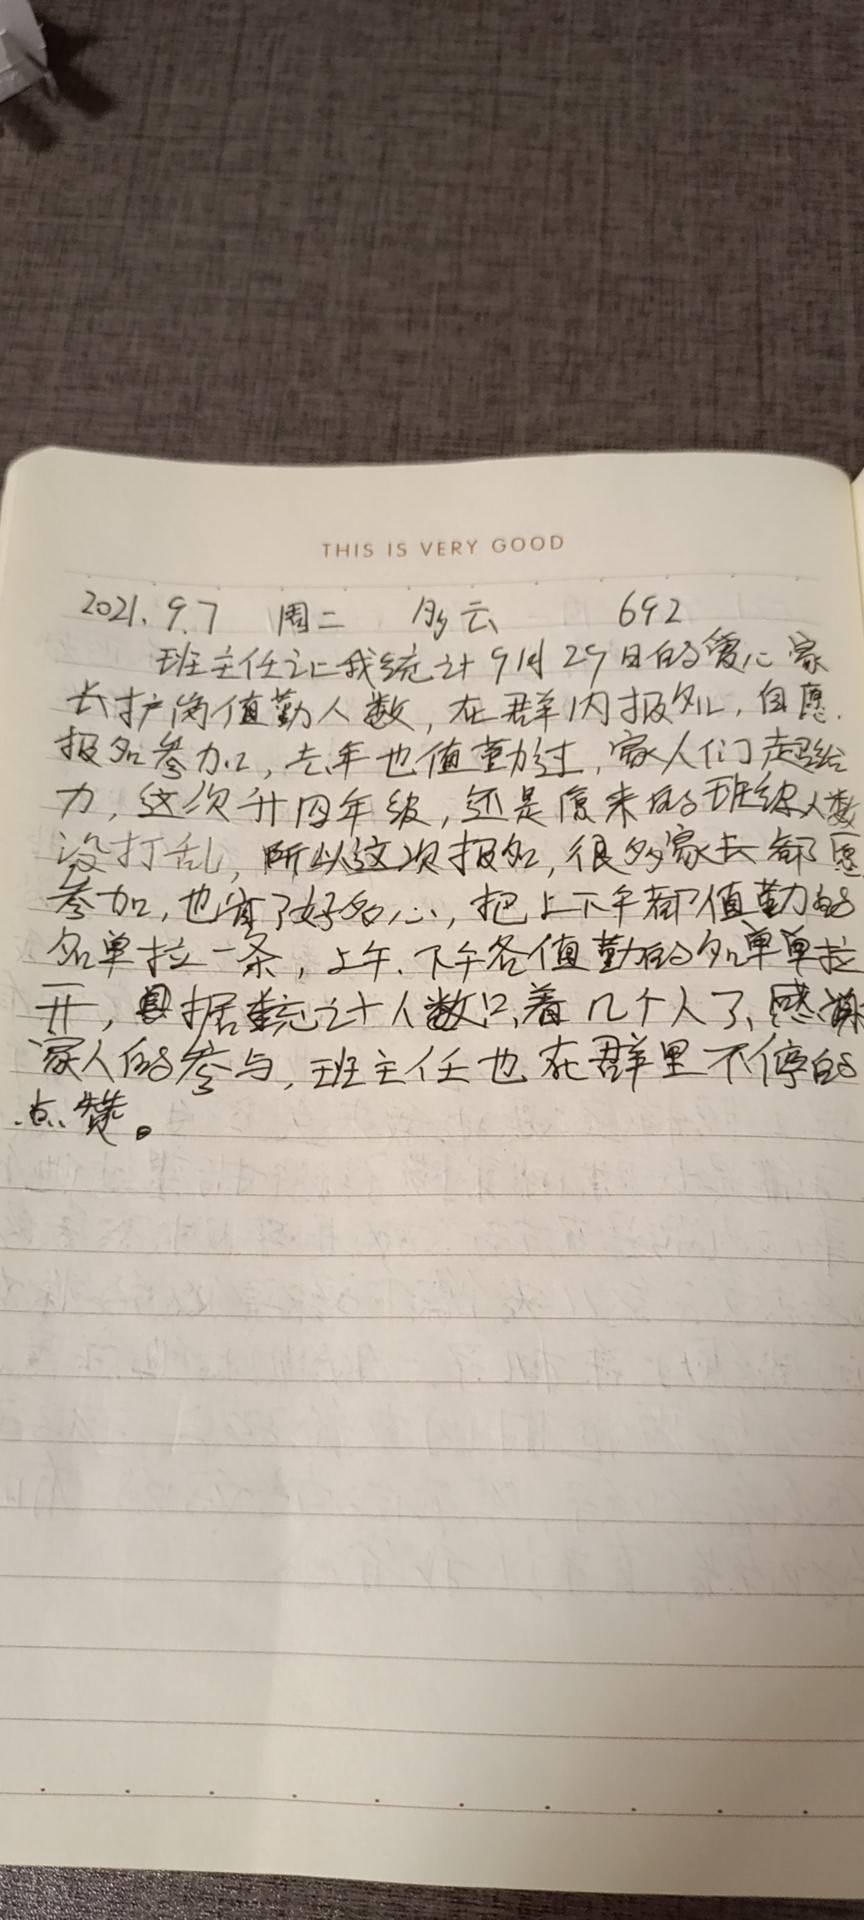 THIS IS VERY GOOD
2021.9.7 周二 多云 692
班主任让我统计9月29日的爱心家
长护岗值勤人数,在群内报名,自愿
报名参加,去年也值勤过,家人们超给
力,这次升四年级,还是原来的班级人数
没打乱,所以这次报名,很多家长都愿
参加,也省了好多心,把上下午都值勤的
名单拉一条,上午、下午各值勤的名单单拉
开,据统计人数只差几个人了,感谢
家人的参与,班主任也在群里不停的
点赞。